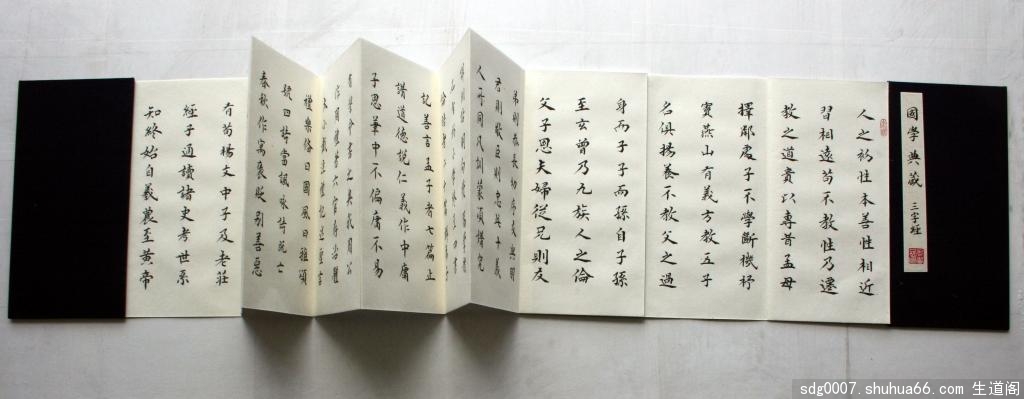 國學典藏 三字經
人之初性本善性相近
習相遠苟不教性乃遷
教之道貴以專昔孟母
擇鄰處子不學斷機杼
竇燕山有義方教五子
名俱揚養不教父之過
身而子子而孫自子孫
至玄曾乃九族人之倫
父子恩夫婦從兄則友
弟則恭長幼序友與朋
君則敬臣則忠此十義
人所同凡訓蒙須講究
記善言孟子者七篇止
講道德說仁義作中庸
子思筆中不偏庸不易
我周公
作周禮著六官存治體
註禮記述聖言
禮樂備曰國風曰雅頌
號四詩當諷詠詩既亡
春秋作寓褒貶別善惡
有荀揚文中子及老莊
經子通讀諸史考世系
知終始自羲農至黃帝
sdg0007.shuhua66.com 生道阁